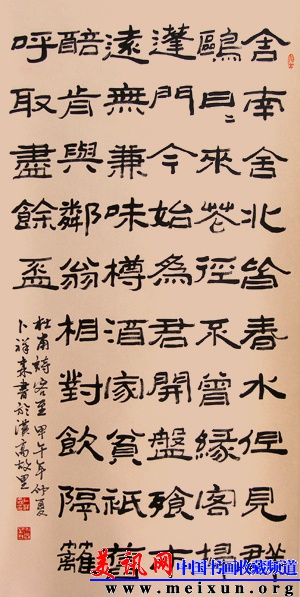 舍南舍北皆春水但見群
鷗日〻來花徑不曾緣客掃
蓬門今始為君開盤飧市
遠無兼味樽酒家貧祇舊
醅肯與鄰翁相對飲隔籬
呼取盡餘盃
杜甫詩客至 甲午年仲夏
卜祥来書於漢高故里
美讯网 中国书画收藏频道
www.meixun.org